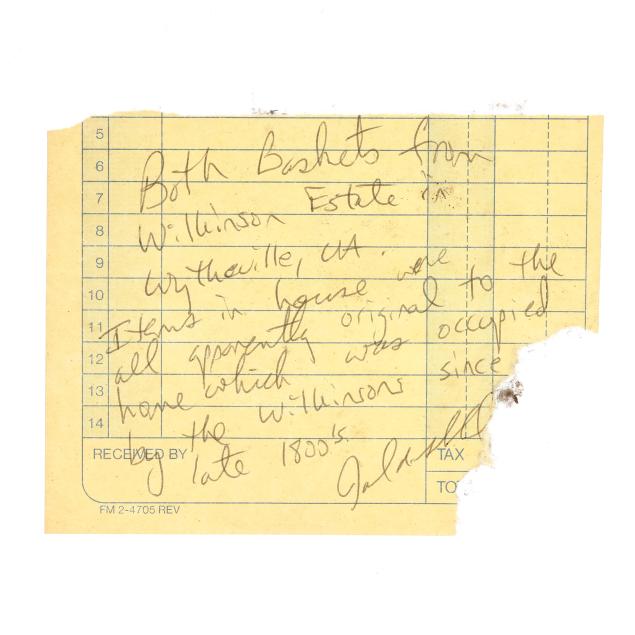 5
6
7
8
9
10
11
12
13
14
Both Baskets from
Wilkinson Estate in
Wytheville, VA.
Items in house were
all apparently original to the
home which was occupied
by the Wilkinsons since
late 1800's.
RECEIVED BY
TAX
TO
FM 2-4705 REV